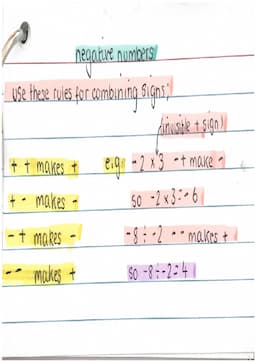 negative numbers
use these rules for combining signs;
(invisible + sign)
+ + makes + e.g. -2 x 3 -+ make -
+ - makes - so -2 x 3 = -6
- + makes - -8 ÷ -2 -- makes +
- - makes + so -8 ÷ -2 = 4